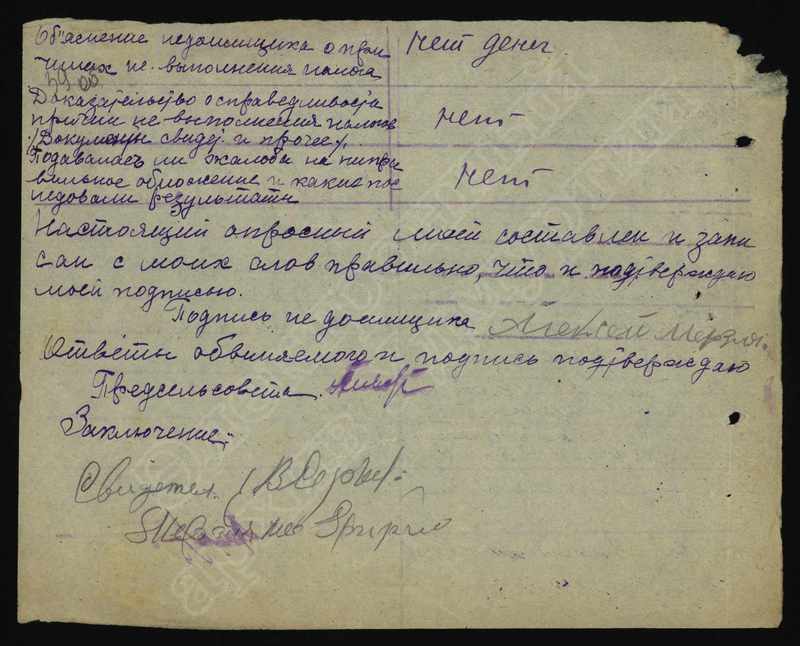 Об'яснение недоимщика о при нет денег
чинах не выполнения налога
Доказательство о справедливости
причин не выполнения налогов нет
/Документы свидет. и прочее/.
Подавалась ли жалоба на непра
вильное обложение и какие пос нет
ледовали результаты
Настоящий опросный лист составлен и запи
сан с моих слов правильно, что и подтверждаю
моей подписью.
Подпись недоимщика Алексей
Ответы обвиняемого и подпись подтверждаю
Предсельсовета.
Заключение:
Свидетел.